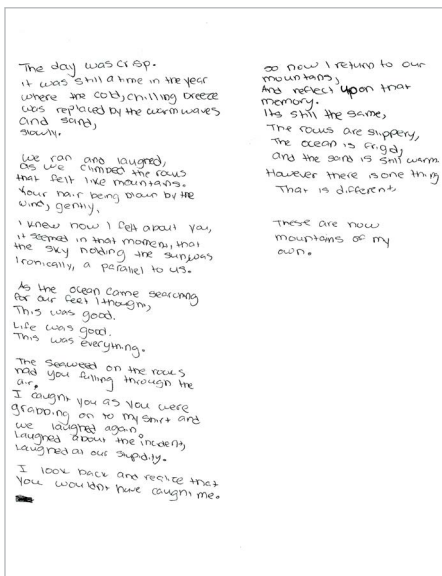 The day was crisp.
it was still a time in the year
where the cold, chilling breeze
was replaced by the warm waves
and sand,
slowly.
we ran and laughed,
as we climbed the rocks
that felt like mountains.
Your hair being blown by the
wind, gently.
I knew how I felt about you,
it seemed in that moment, that
the sky holding the sun, was
Ironically, a parallel to us.
As the ocean came searching
for our feet I thought,
This was good.
Life was good.
This was everything.
The seaweed on the rocks
had you falling through the
air,
I caught you as you were
grabbing on to my shirt and
we laughed again.
Laughed about the incident,
Laughed at our stupidity.
I look back and realize that
you wouldnt have caught me.
so now I return to our
mountains,
And reflect upon that
memory.
Its still the same,
The rocks are slippery,
The ocean is frigid,
and the sand is still warm.
However there is one thing
That is different.
These are now
mountains of my
own.